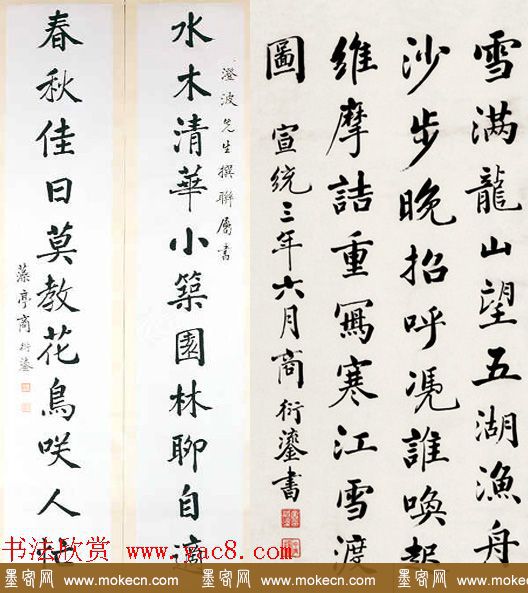 雪滿龍山望五湖漁舟
沙步晚招呼慿誰喚起
維摩詰重寫寒江雪渡
圖 宣統三年六月商衍鎏書
水木清華小築園林聊自適
澄波先生撰聯屬書
春秋佳日莫教花鳥咲人
藻亭商衍鎏
书法欣赏 www.yac8.com
墨客网 www.mokecn.com 墨客网 www.mokecn.com 墨客网 www.mokecn.com